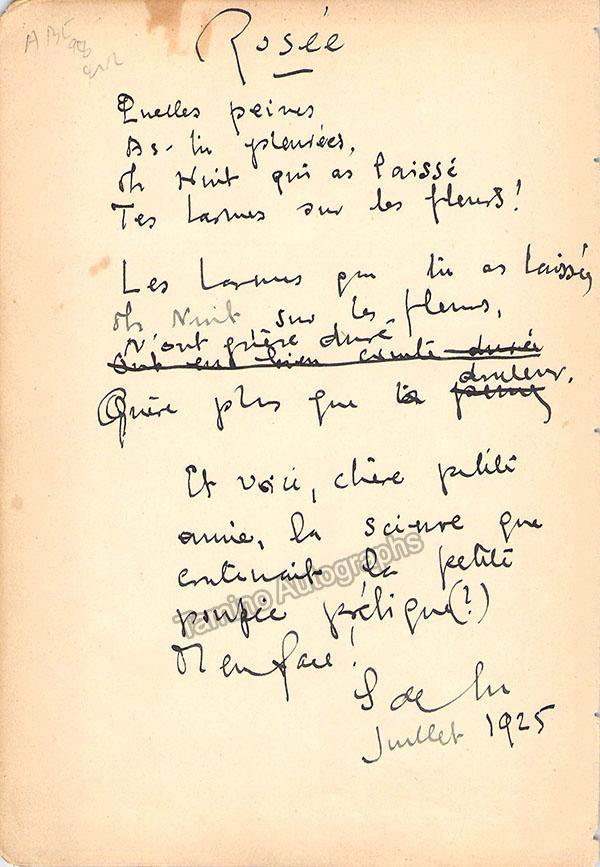 Rosée
Quelles peines
As-tu pleurées,
Oh Nuit qui as laissé
Tes larmes sur les fleurs!
Les larmes que tu as laissées
Oh Nuit sur les fleurs,
N'ont guère duré
Ont eu bien courte durée
douleur,
Guère plus que la peine
Et voici, chère petite
amie, la science que
contenait la petite
poupée (?)
en face!
Juillet 1925
Tamino Autographs